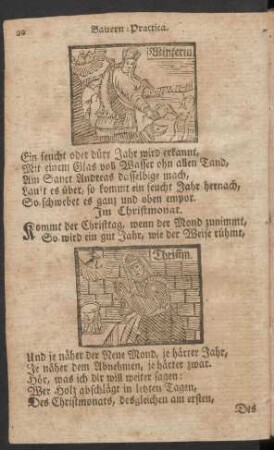 20 Bauern-Practica.
Winterm
Ein feucht oder dürr Jahr wird erkannt,
Mit einem Glas voll Wasser ohn allen Tand,
Am Sanct Andreas dasselbige mach,
Lauft es über, so kommt ein feucht Jahr hernach,
So schwebet es ganz und oben empor.
Im Christmonat.
Kommt der Christtag, wenn der Mond zunimmt,
So wird ein gut Jahr, wie der Weise rühmt,
Christm.
Und je näher der Neue Mond, je härter Jahr,
Je näher dem Abnehmen, je härter zwar.
Hör, was ich dir will weiter sagen:
Wer Holz abschlägt in letzten Tagen,
Des Christmonats, desgleichen am ersten,
Des